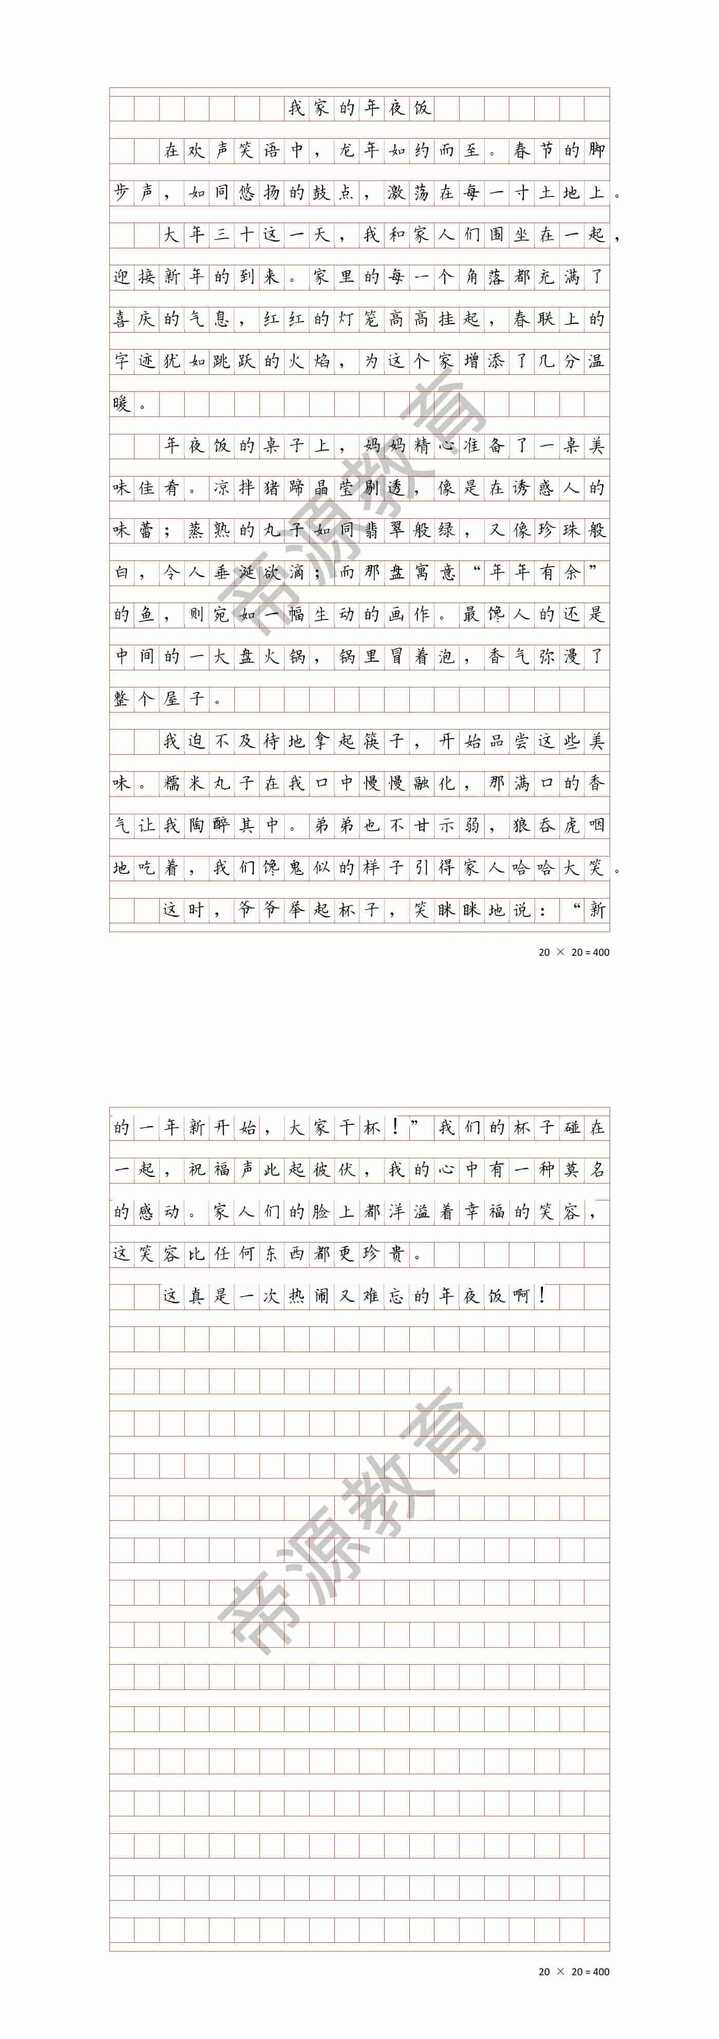 我家的年夜饭
在欢声笑语中，龙年如约而至。春节的脚
步声，如同悠扬的鼓点，激荡在每一寸土地上。
大年三十这一天，我和家人们围坐在一起，
迎接新年的到来。家里的每一个角落都充满了
喜庆的气息，红红的灯笼高高挂起，春联上的
字迹犹如跳跃的火焰，为这个家增添了几分温
暖。
年夜饭的桌子上，妈妈精心准备了一桌美
味佳肴。凉拌猪蹄晶莹剔透，像是在诱惑人的
味蕾；蒸熟的丸子如同翡翠般绿，又像珍珠般
白，令人垂涎欲滴；而那盘寓意“年年有余”
的鱼，则宛如一幅生动的画作。最馋人的还是
中间的一大盘火锅，锅里冒着泡，香气弥漫了
整个屋子。
我迫不及待地拿起筷子，开始品尝这些美
味。糯米丸子在我口中慢慢融化，那满口的香
气让我陶醉其中。弟弟也不甘示弱，狼吞虎咽
地吃着，我们馋鬼似的样子引得家人哈哈大笑。
这时，爷爷举起杯子，笑眯眯地说：“新
20 × 20 = 400
的一年新开始，大家干杯！”我们的杯子碰在
一起，祝福声此起彼伏，我的心中有一种莫名
的感动。家人们的脸上都洋溢着幸福的笑容，
这笑容比任何东西都更珍贵。
这真是一次热闹又难忘的年夜饭啊！
20 × 20 = 400
帝源教育
帝源教育